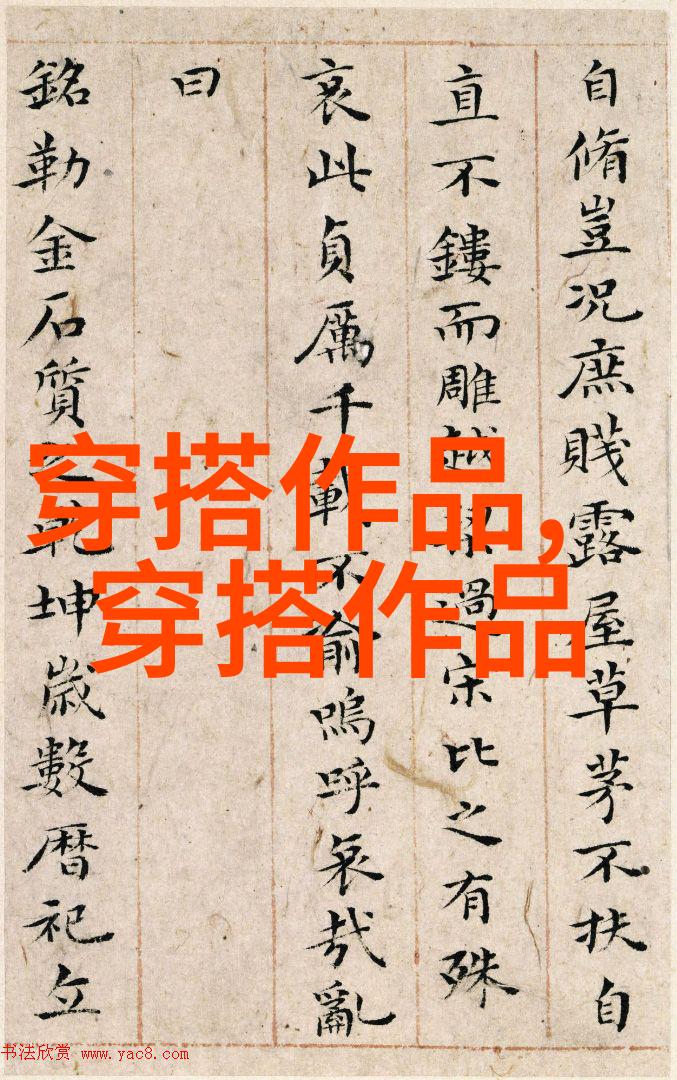 自脩豈況庶賤露屋草茅不扶自
直不鏤而雕越過宋比之有殊
哀此貞厲千載不渝嗚呼哀哉亂
曰
銘勒金石質之乾坤歲數暦祀立
穿搭作品,
穿搭作品
书法欣赏 www.yac8.com